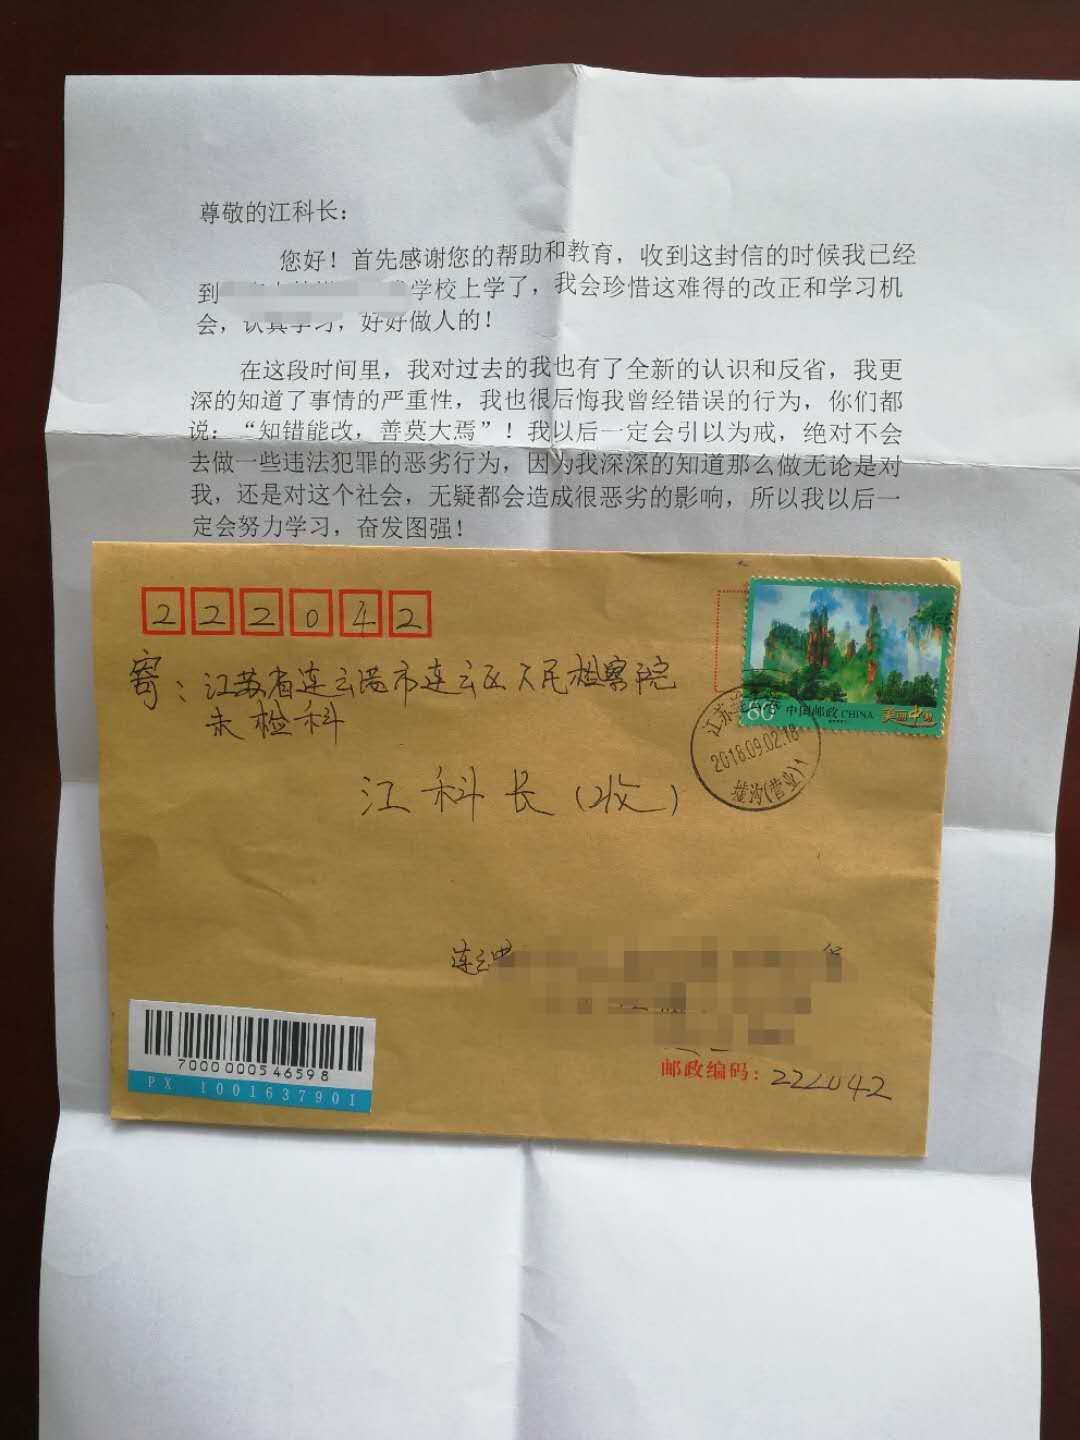 尊敬的江科长：
您好！首先感谢您的帮助和教育，收到这封信的时候我已经
到 学校上学了，我会珍惜这难得的改正和学习机
会，认真学习，好好做人的！
在这段时间里，我对过去的我也有了全新的认识和反省，我更
深的知道了事情的严重性，我也很后悔我曾经错误的行为，你们都
说：“知错能改，善莫大焉”！我以后一定会引以为戒，绝对不会
去做一些违法犯罪的恶劣行为，因为我深深的知道那么做无论是对
我，还是对这个社会，无疑都会造成很恶劣的影响，所以我以后一
定会努力学习，奋发图强！
222042
寄：江苏省连云港市连云区人民检察院
未检科
江科长（收）
80 中国邮政 CHINA 美丽中国
江苏连云港
2018.09.02.18
墟沟(营业)1
连云
邮政编码：222042
7000000546598
PX 1001637901